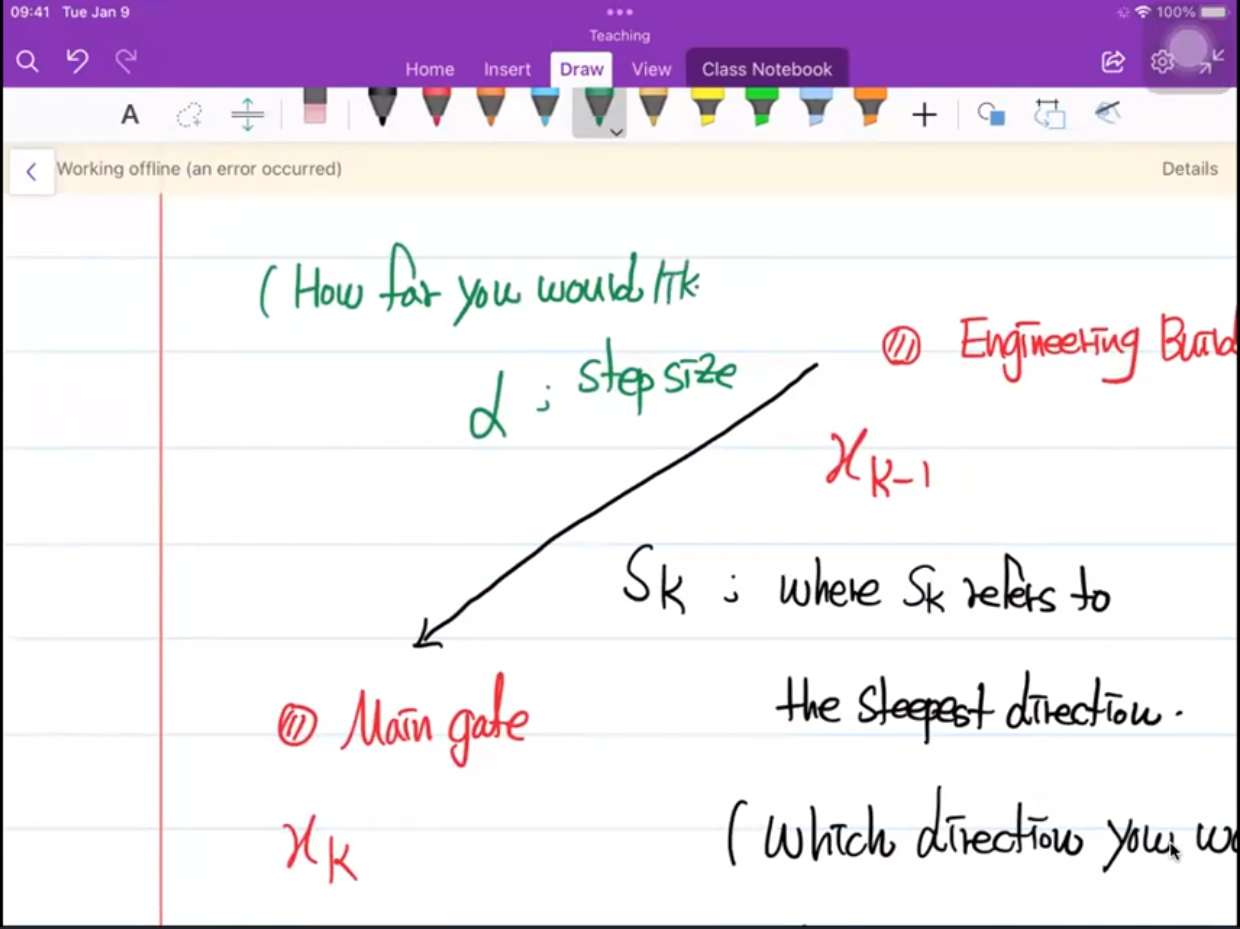 09:41 Tue Jan 9
100%
Teaching
Home Insert Draw View Class Notebook
A
Working offline (an error occurred)
Details
(How far you would
Engineering Build
α ; step size
x K-1
SK ; where SK refers to
the steepest direction.
Main gate
x K
(Which direction you